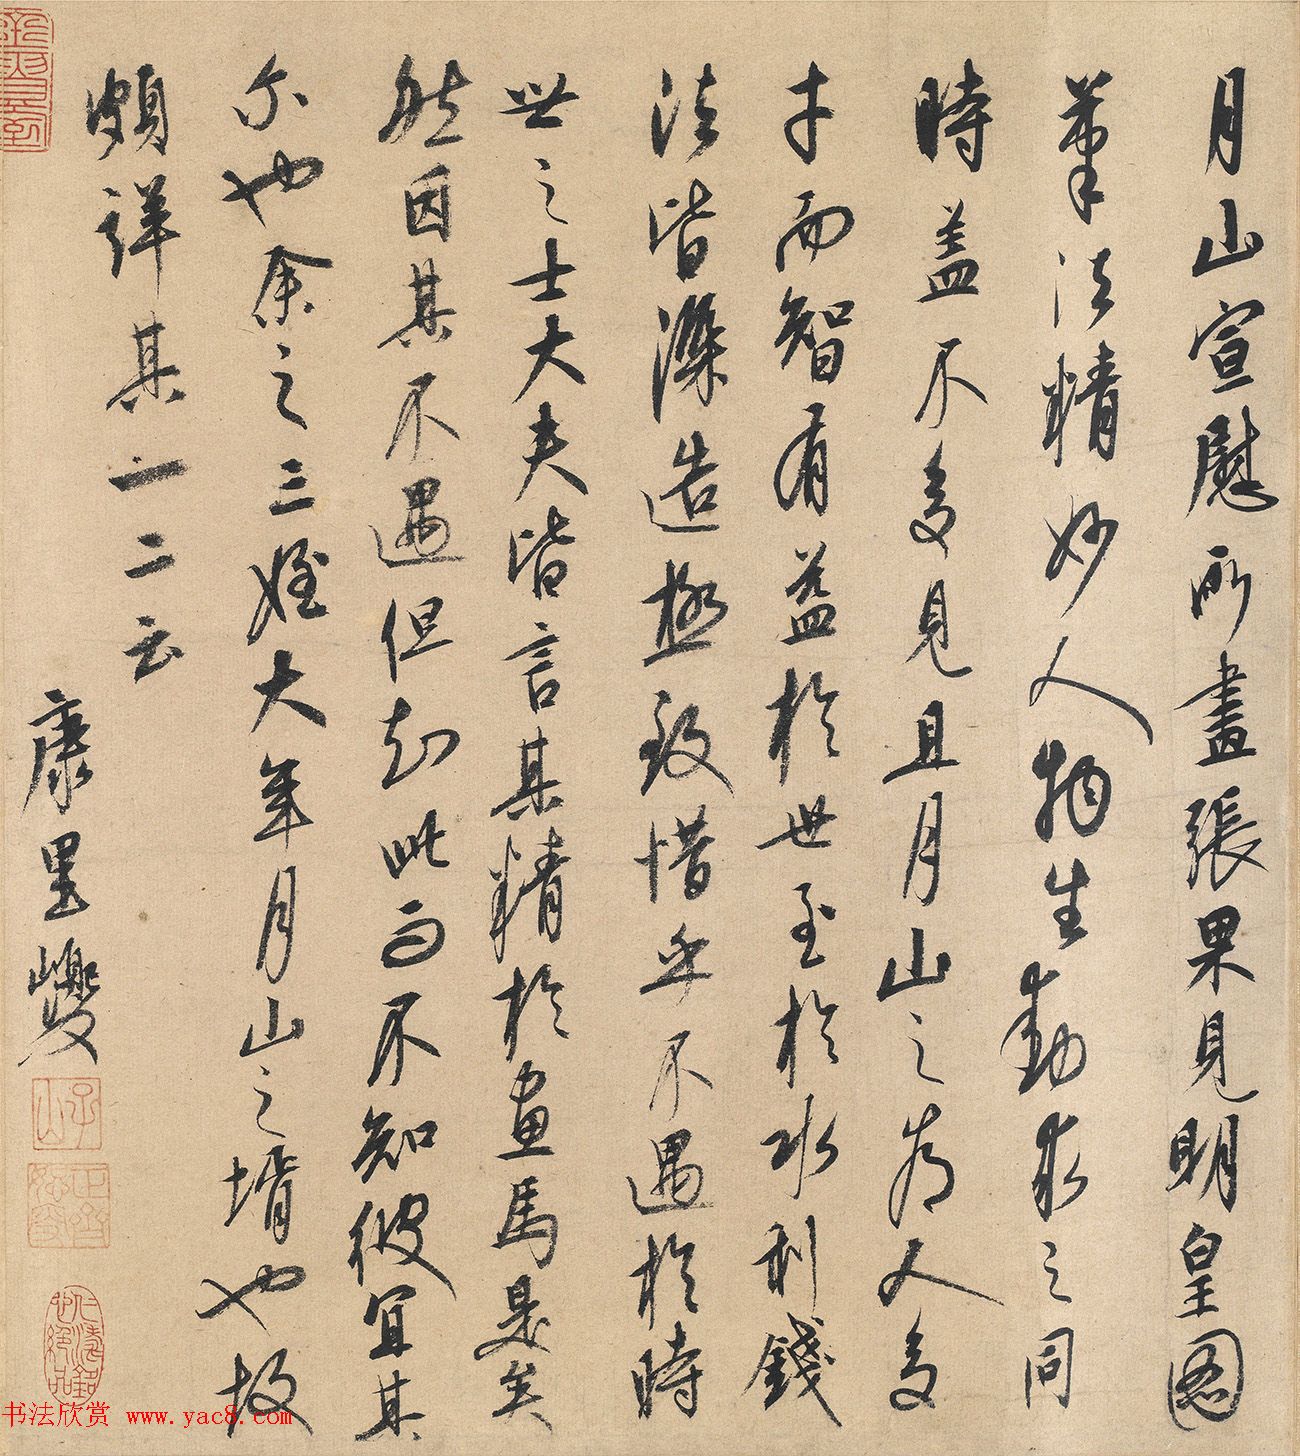 月山宣慰所畫張果見明皇圖
筆法精妙人物生動求之同
時蓋不多見且月山之爲人多
才而智有益於世至於水利錢
法皆深造極致惜乎不遇於時
世之士大夫皆言其精於画馬是矣
然因其不遇但知此而不知彼宜其
尔也余之三姪大年月山之壻也故
頗詳其一二云
康里巎
子山
正齋恕叟
书法欣赏 www.yac8.com